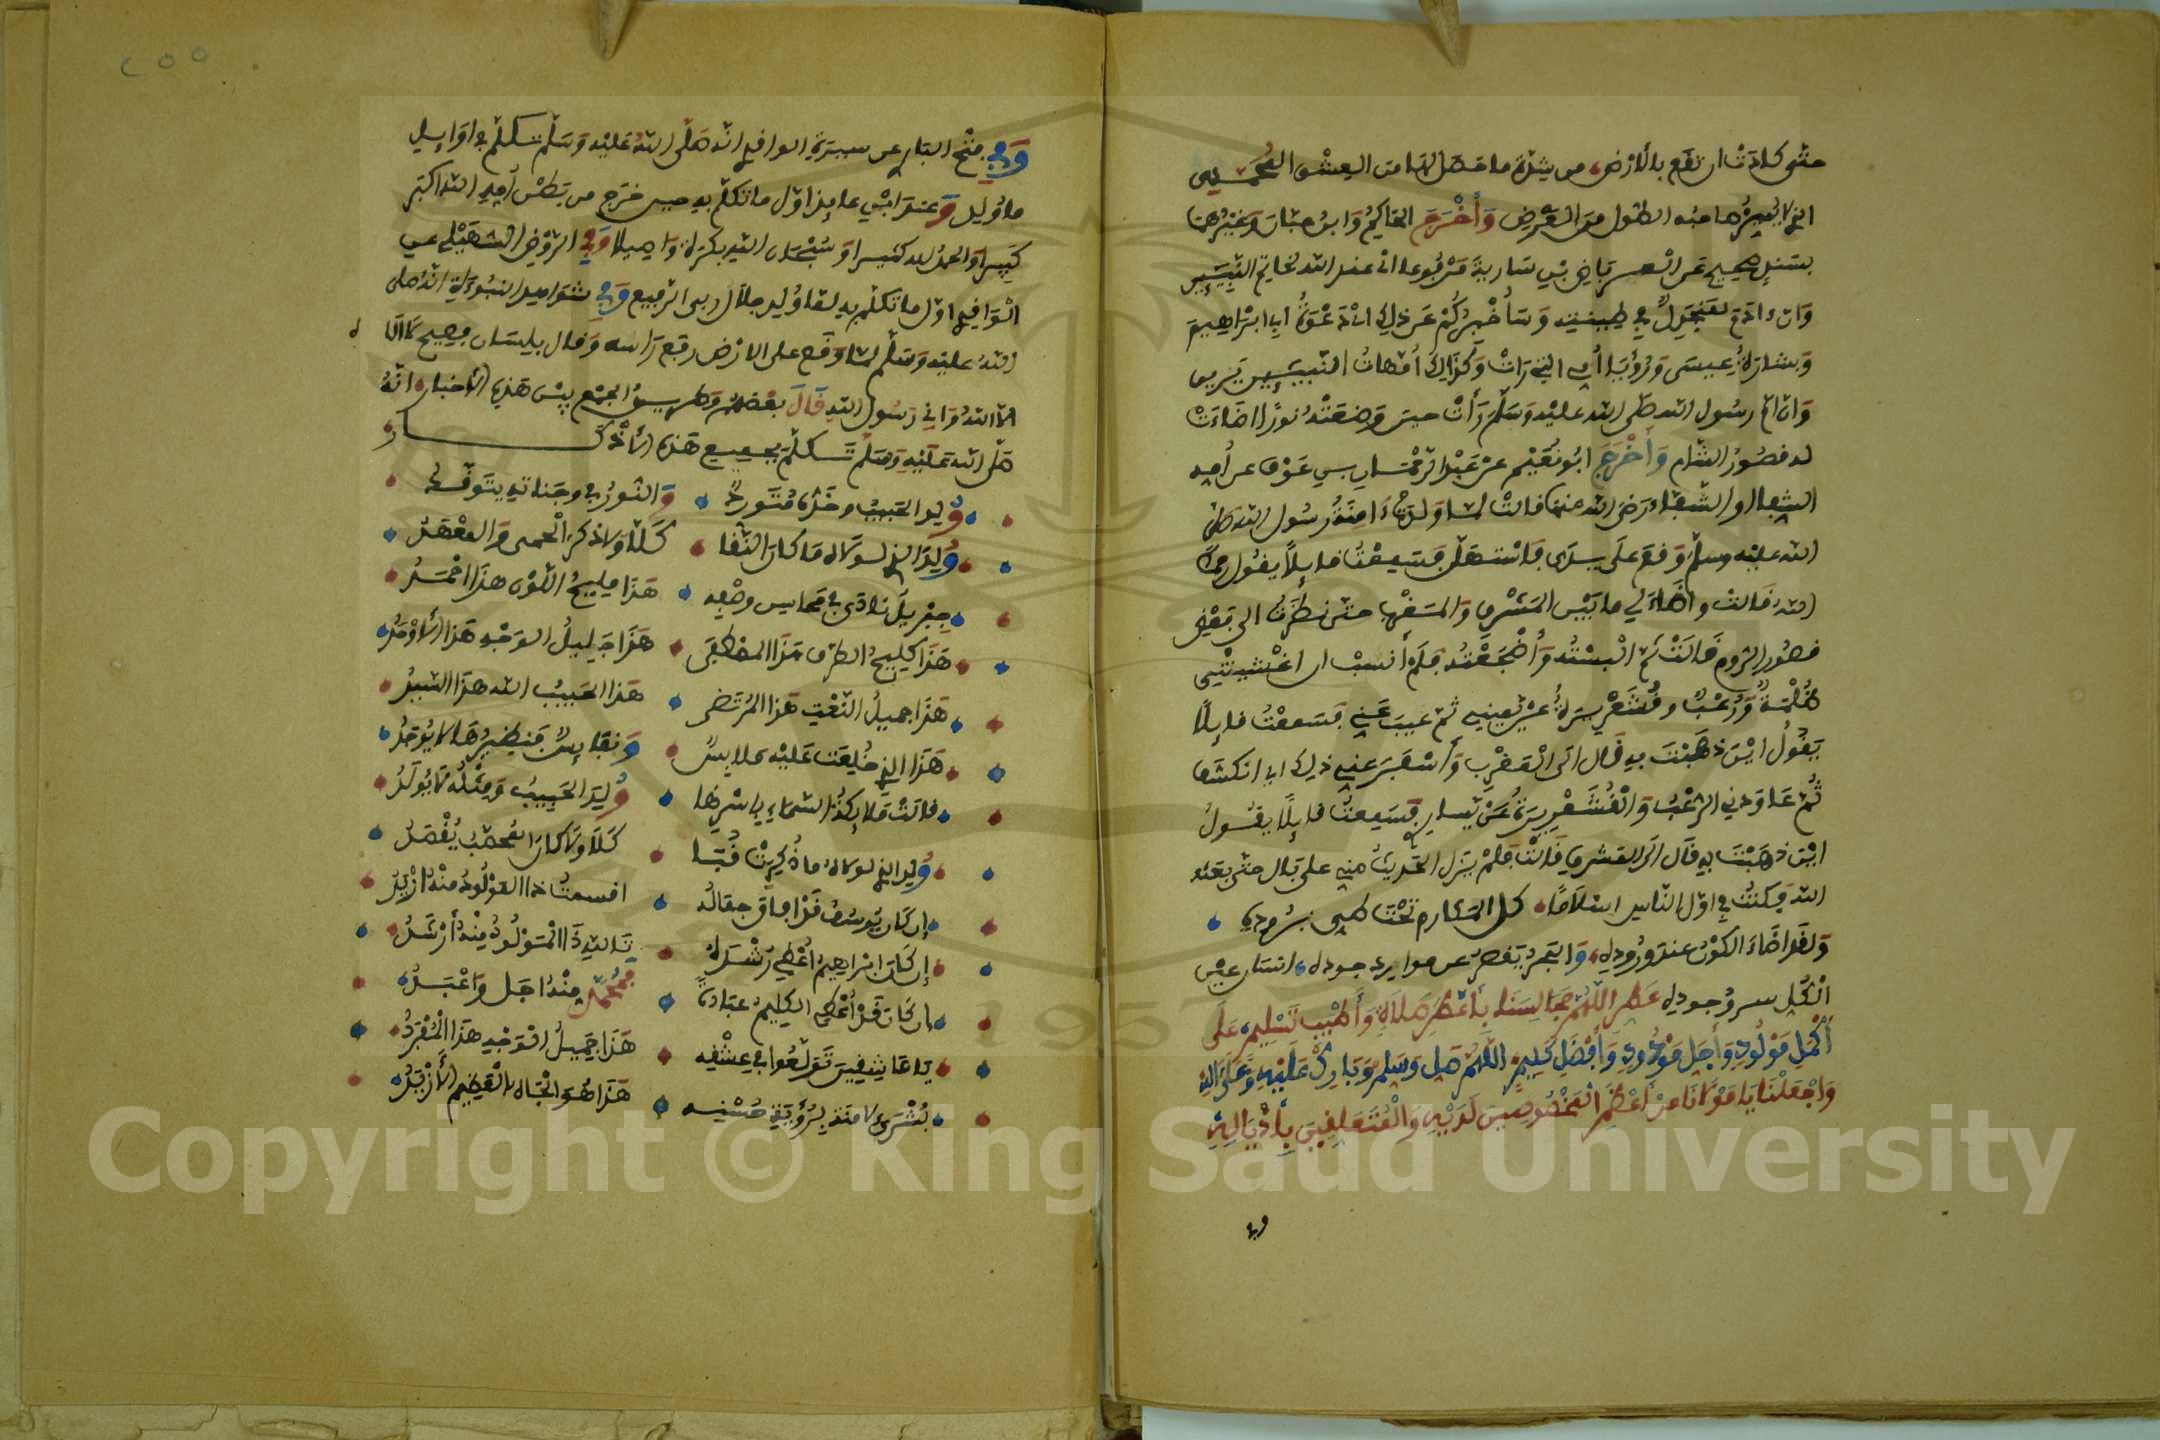 حتى كادت ان تقع بالأرض من شدة ما حصل لها من العشق المحمدي
الذي لا يميز صاحبه الطول من العرض وأخرج الحاكم وابن حبان وغيرهما
بسند صحيح عن العرباض بن سارية مرفوعا اني عند الله لخاتم النبيين
وان ءادم لمنجدل في طينته وسأخبركم عن ذلك انا دعوة ابي ابراهيم
وبشارة عيسى ورؤيا أمي التي رأت وكذلك أمهات النبيئين يرين
وان ام رسول الله صلى الله عليه وسلم رأت حين وضعته نورا اضاءت
له قصور الشام وأخرج ابو نعيم عن عبد الرحمن بن عوف عن أمه
الشفاء رضي الله عنها قالت لما ولدت ءامنة رسول الله صلى
الله عليه وسلم وقع على يدي فاستهل فسمعت قايلا يقول رحمك
الله قالت واضاء لي ما بين المشرق والمغرب حتى نظرت الى بعض
قصور الروم قالت ثم البسته وأضجعته فلم أنشب ان اغشيتني
ظلمة ورعب وقشعريرة عن يميني ثم غيب عني فسمعت قايلا
يقول اين ذهبت به قال الى المغرب وأسفر عني ذلك اي انكشف
ثم عاودني الرعب والقشعريرة عن يساري فسمعت قايلا يقول
اين ذهبت به قال الى المشرق قالت فلم يزل الحديث مني على بال حتى بعثه
الله فكنت في اول الناس اسلاما كل المكارم تحت طي بروده
ولقد اضاء الكون عند وروده والبحر يقصر عن موارد جوده انسان عين
الكل سر وجوده عطر اللهم مجالسنا بأعطر صلاة وأطيب تسليم على
أكمل مولود وأجل مودود وأفضل كليم اللهم صل وسلم وبارك عليه وعلى ءاله
واجعلنا يا مولانا من أعظم المخصوصين لديه والمتعلقين بأذياله
وفي
٢٥٥
وفي فتح الباري عن سيرة الواقدي انه صلى الله عليه وسلم تكلم في اوايل
ما ولد وعند ابن عايذ اول ما تكلم به حين خرج من بطن أمه الله اكبر
كبيرا والحمد لله كثيرا وسبحان الله بكرة واصيلا وفي الروض للسهيلي عن
الواقدي اول ما تكلم به لما ولد جلال ربي الرفيع وفي شواهد النبوة انه صلى
الله عليه وسلم لما وقع على الارض رفع رأسه وقال بلسان فصيح لا اله
الا الله واني رسول الله قال بعضهم وطريق الجمع بين هذه الأخبار انه
صلى الله عليه وسلم تكلم بجميع هذه الأذكار
ولد الحبيب وخده متورد والنور في وجناته يتوقد
ولد الذي لولاه ما كان النقا كلا ولا ذكر الحمى والمعهد
جبريل نادى في محاسن وصفه هذا مليح اللون هذا احمد
هذا كحيل الطرف هذا المصطفى هذا جميل الوجه هذا الأوحد
هذا جميل النعت هذا المرتضى هذا الحبيب الله هذا السيد
هذا الذي خلعت عليه ملابس ونفايس فنظيرها لا يوجد
قالت ملايكة السماء بأسرها ولد الحبيب ومثله لا يولد
ولد الذي لولاه ما ذكرت قبا كلا ولا كان المحصب يقصد
إن كان يوسف قد افاق جماله اقسمت ذا المولود منه ازيد
إن كان ابراهيم اعطي رشده تالله ذا المولود منه أرشد
إن كان قد أعطي الكليم عبادة فمحمد منه اجل وأعبد
يا عاشقين تولعوا في عشقه هذا جميل الوجه هذا المفرد
بشرى لأمته برؤية حسنه هذا هو الجاه العظيم الأزيد